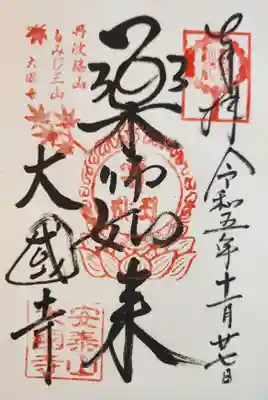 奉拝
令和五年十一月廿七日
薬師如来
丹波篠山
もみじ三山
大国寺
大國寺
安泰山
大國寺